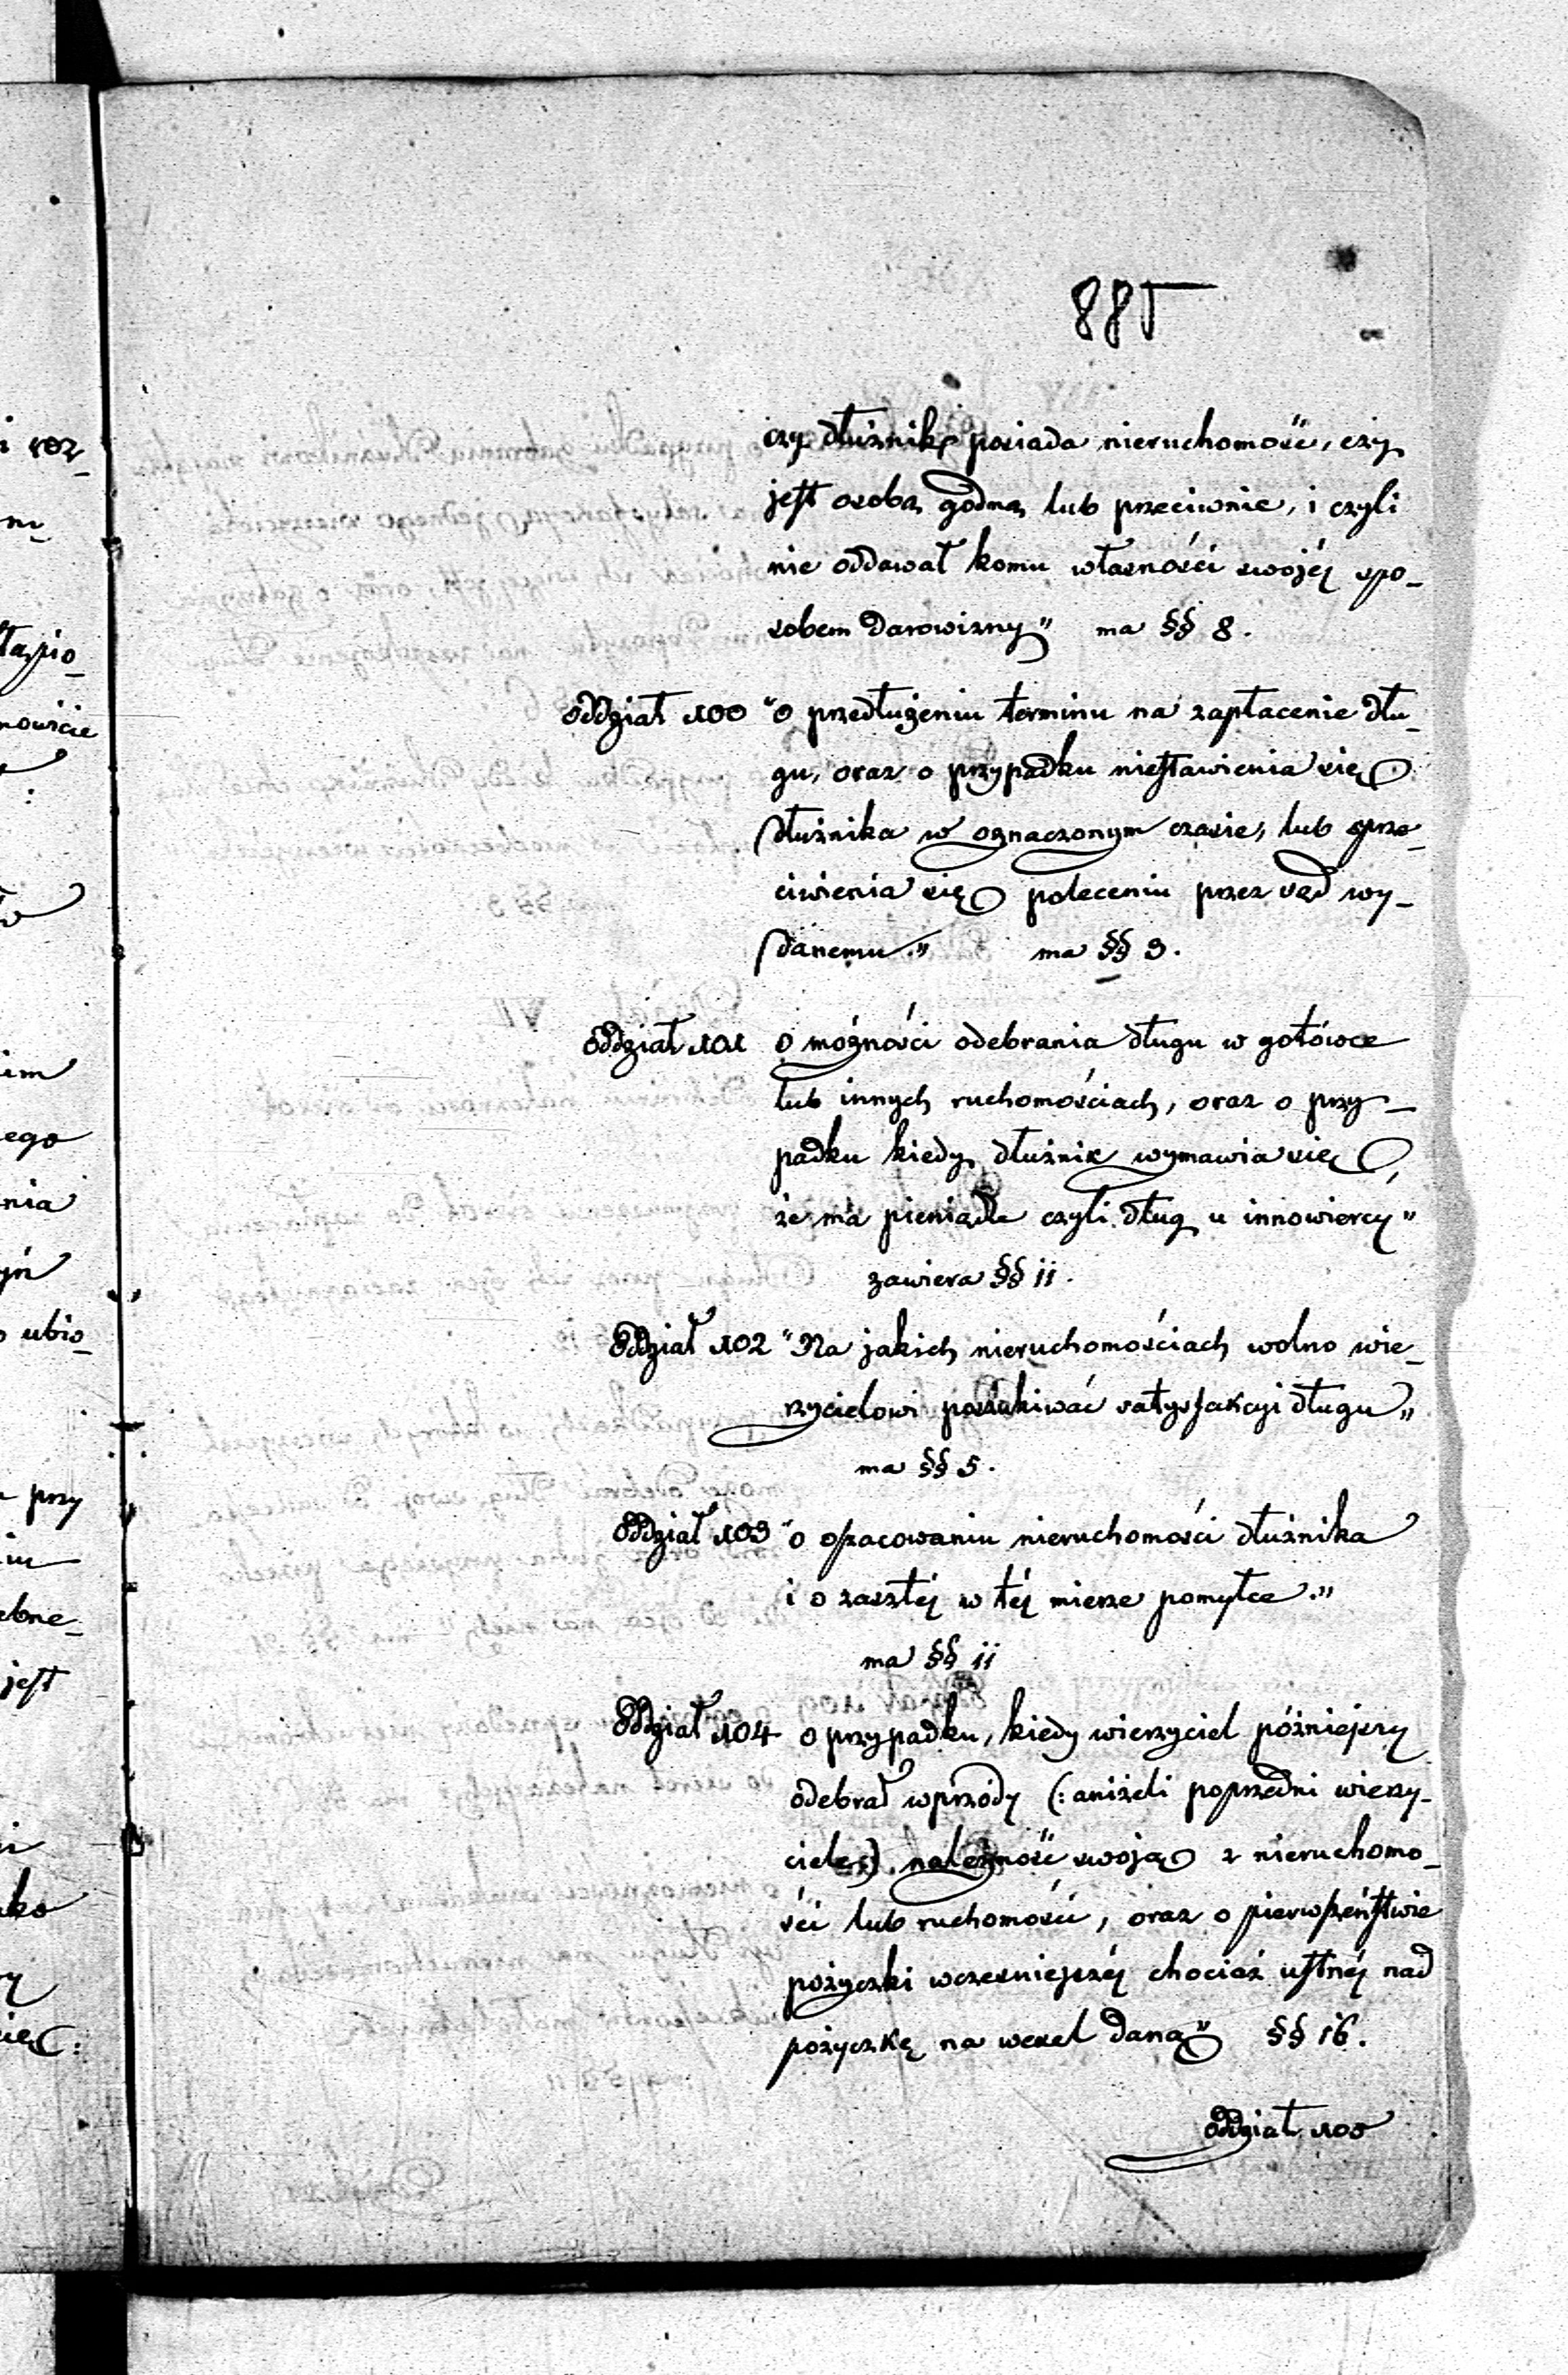 885
czy dłużnik posiada nieruchomość, czy
jest osobą godną lub przeciwnie, i czyli
nie oddawał komu własności swojéj spo-
sobem darowizny" ma §§ 8.
oddział 100 "o przedłużeniu terminu na zapłacenie dłu-
gu, oraz o przypadku niestawienia się
dłużnika w oznaczonym czasie, lub sprze-
ciwienia się poleceniu przez sąd wy-
danemu." ma §§ 9.
oddział 101 o możności odebrania długu w gotówce
lub innych ruchomościach, oraz o przy-
padku kiedy dłużnik wymawia się,
że ma pieniądze czyli dług u innowiercy"
zawiera §§ 11.
Oddział 102 "Na jakich nieruchomościach wolno wie-
rzycielowi poszukiwać satysfakcyi długu"
ma §§ 5.
Oddział 103 "o opacowaniu nieruchomości dłużnika
i o zaszłéj w téj mierze pomyłce."
ma §§ 11
Oddział 104 o przypadku, kiedy wierzyciel późniejszy
odebrał wprzódy (: aniżeli poprzedni wierzy-
ciele:) należność swoją z nieruchomo-
ści lub ruchomości, oraz o pierwszeństwie
pożyczki wcześniejszéj chociaż ustnéj nad
pożyczkę na wexel daną" §§ 16.
oddział 105